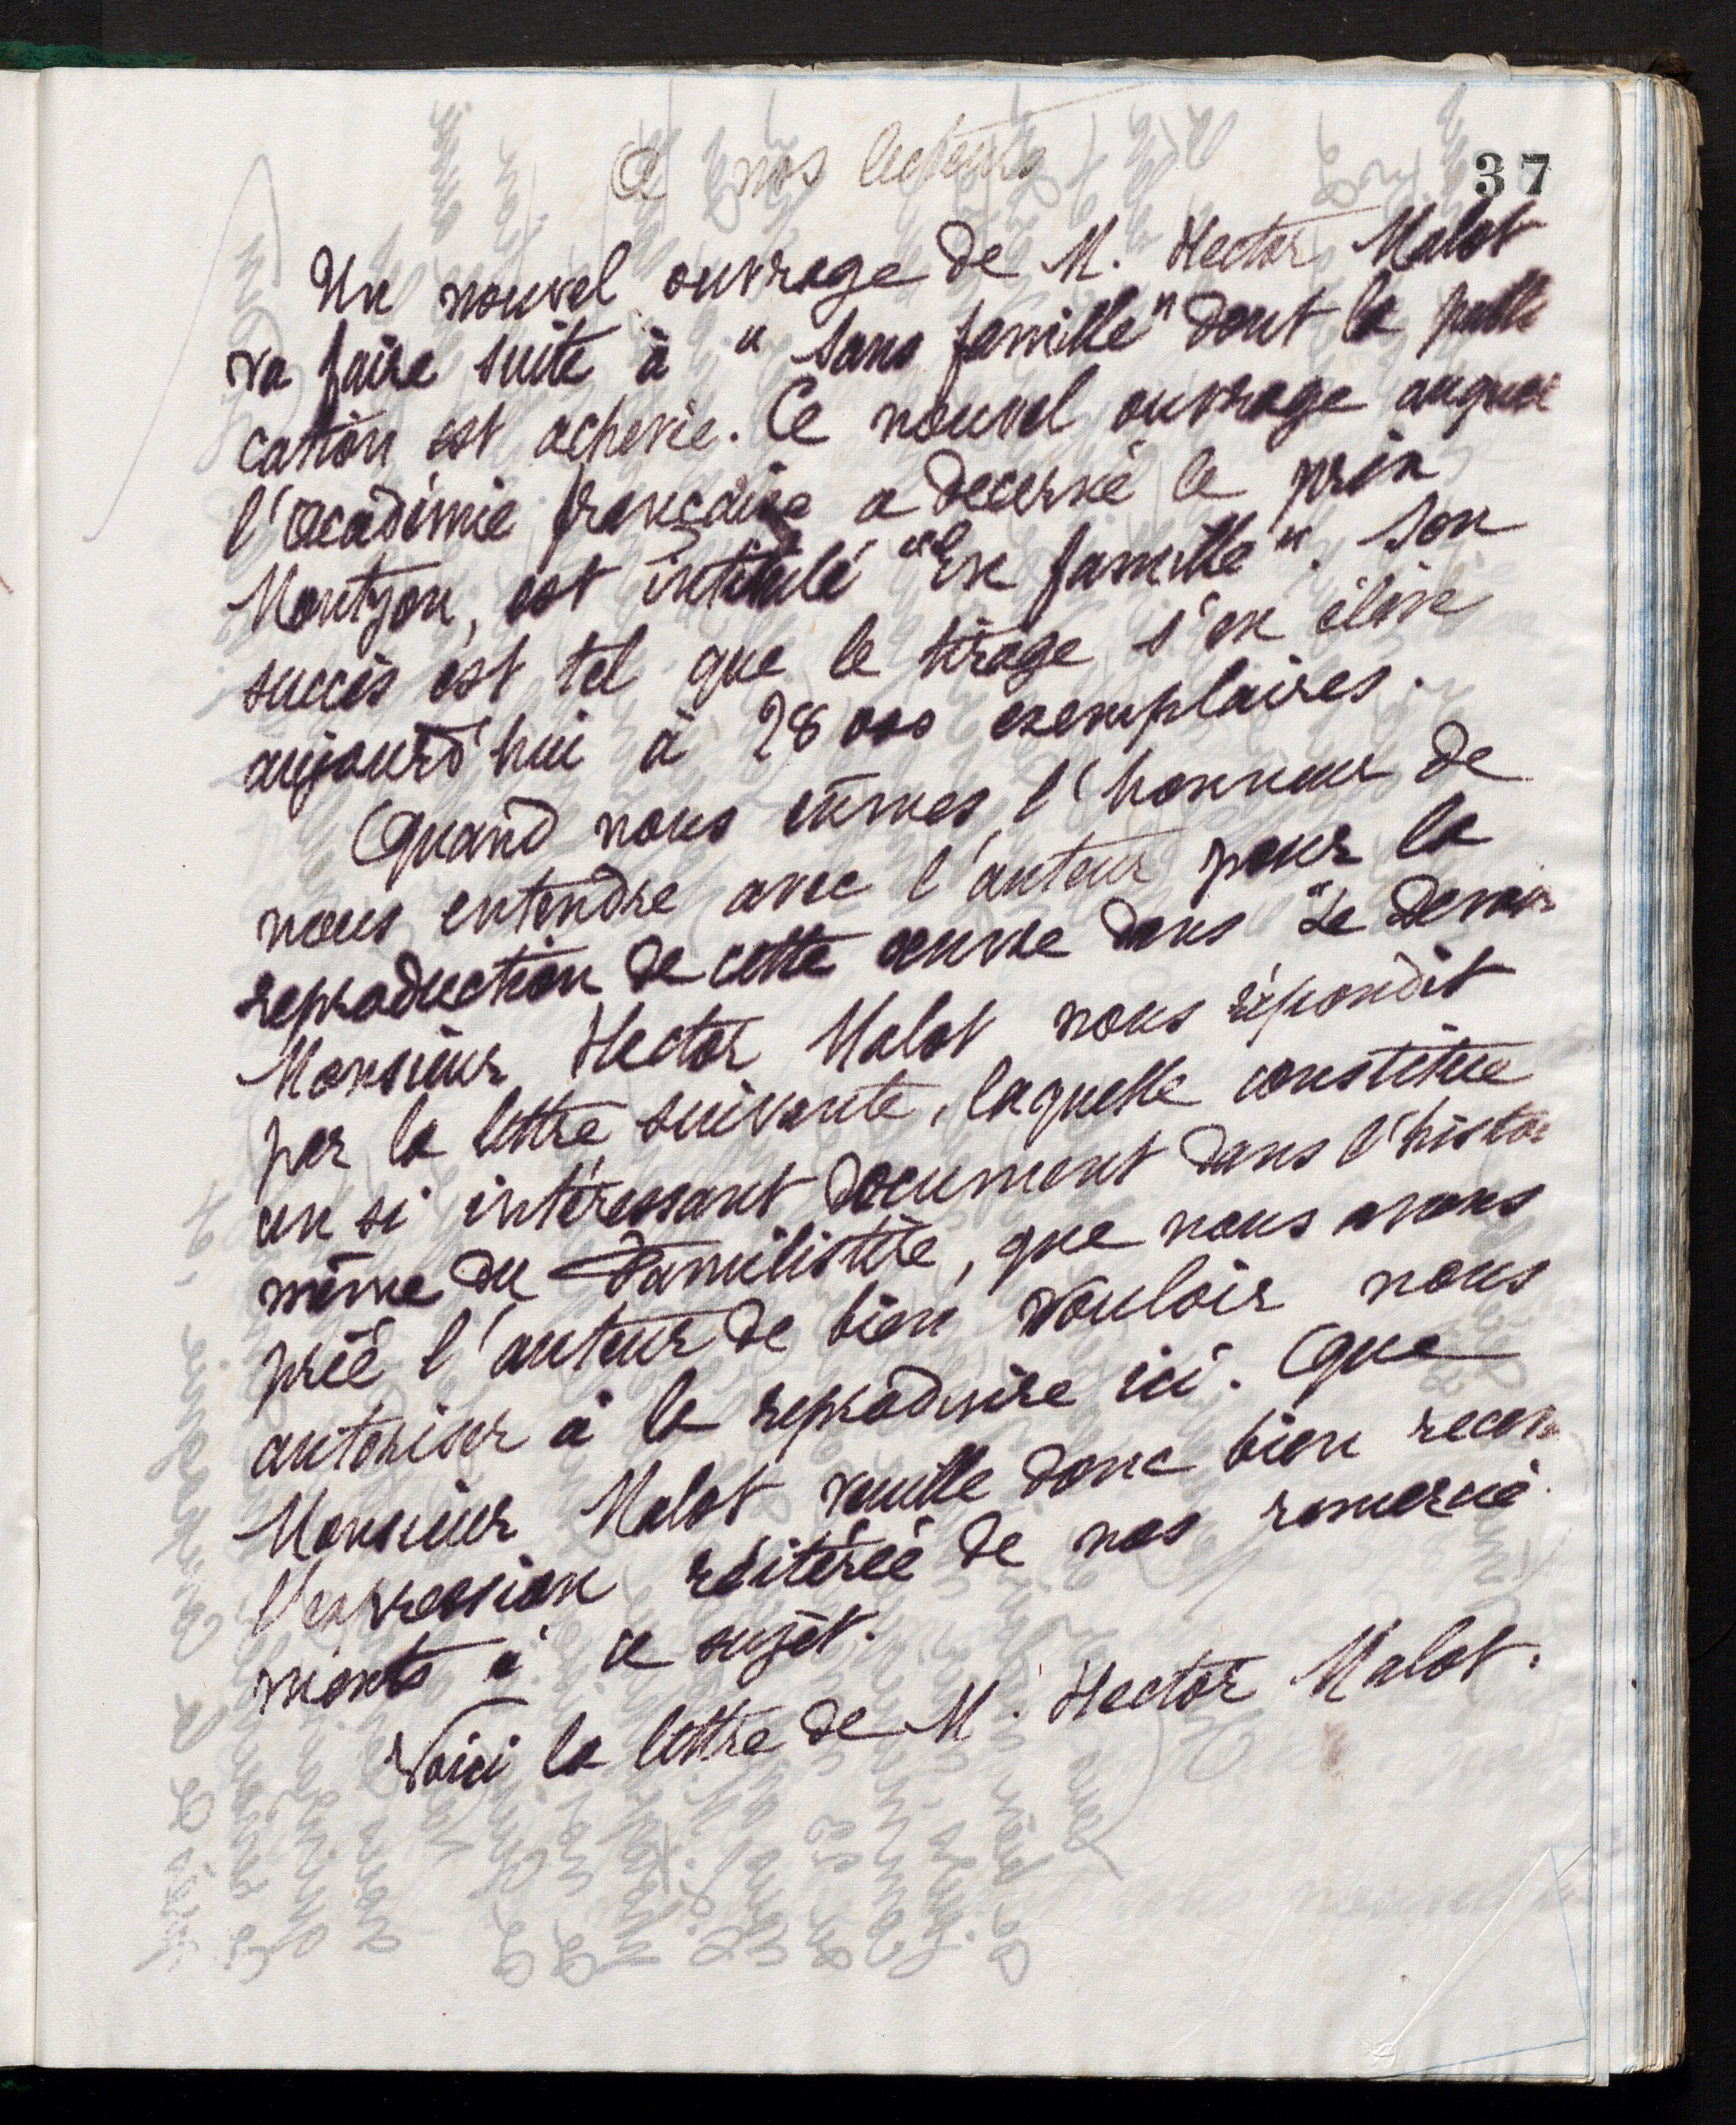 37
A nos lecteurs
Un nouvel ouvrage de M. Hector Malot
va faire suite à "Sans famille" dont la publi
cation est achevée. Ce nouvel ouvrage auquel
l'Académie française a décerné le prix
Montyon, est intitulé "En famille". Son
succès est tel que le tirage s'en élève
aujourd'hui à 28 000 exemplaires.
Quand nous eûmes l'honneur de
nous entendre avec l'auteur pour la
reproduction de cette œuvre dans "Le Devoir
Monsieur Hector Malot nous répondit
par la lettre suivante, laquelle constitue
un si intéressant document dans l'histoi
même du Familistère, que nous avons
prié l'auteur de bien vouloir nous
autoriser à la reproduire ici. Que
Monsieur Malot veuille donc bien recevoir
l'expression réitérée de nos remercie
ments à ce sujet.
Voici la lettre de M. Hector Malot.